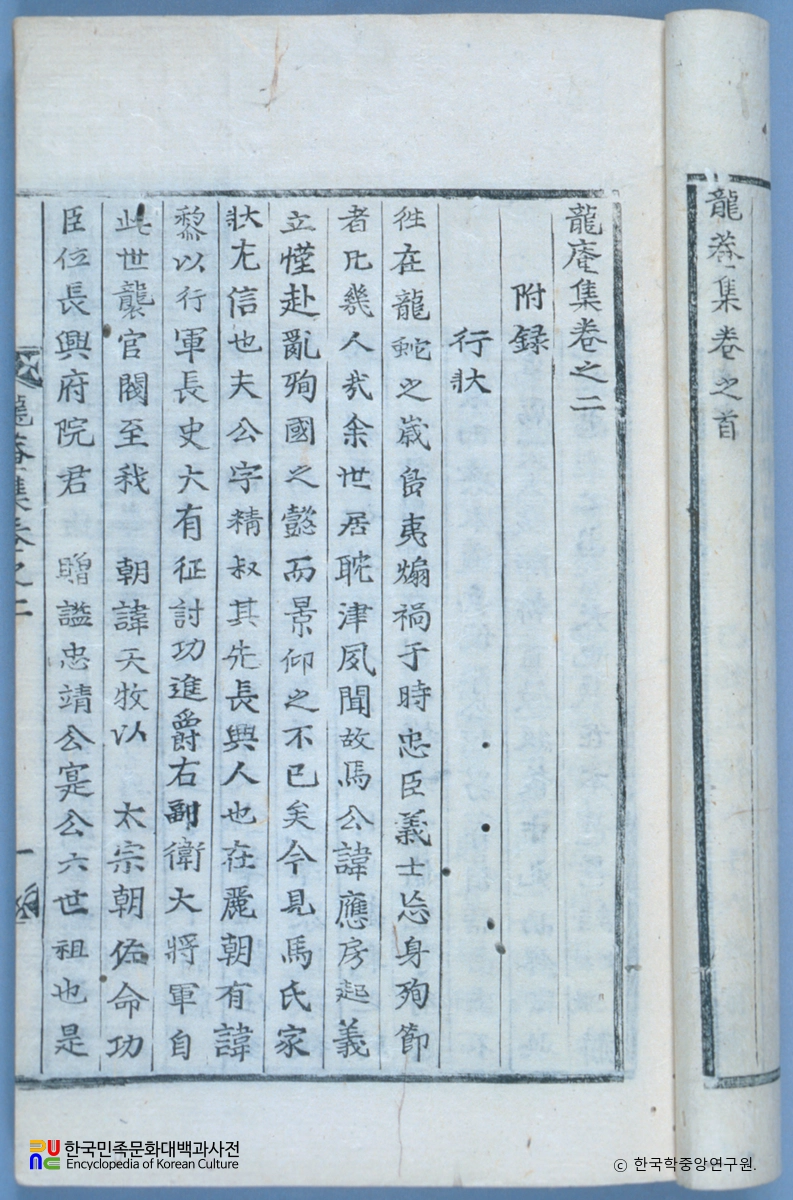 龍菴集卷之首
龍菴集卷之二
附録
行狀
徃在龍蛇之歲島夷煽禍于時忠臣義士忘身殉節
者凡幾人㦲余世居耽津夙聞故馬公諱應房起義
立慬赴亂殉國之懿而景仰之不已矣今見馬氏家
狀尤信也夫公字精叔其先長興人也在麗朝有諱
黎以行軍長史大有征討功進爵右副衛大將軍自
此世襲官閥至我 朝諱天牧以 太宗朝佐命功
臣位長興府院君 贈謚忠靖公寔公六世祖也是
龍菴集卷之二 一
한국민족문화대백과사전
Encyclopedia of Korean Culture
ⓒ 한국학중앙연구원.